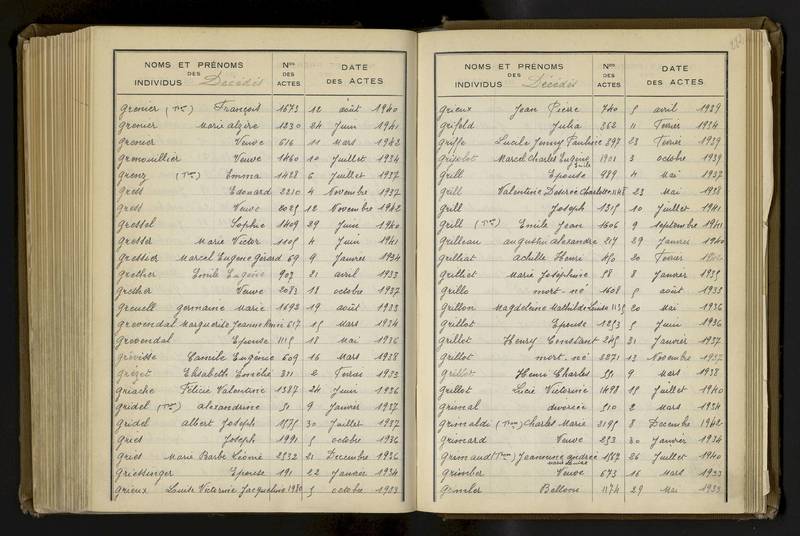 NOMS ET PRÉNOMS DES INDIVIDUS Décédés Nos DES ACTES DATE DES ACTES
Grenier (Tion) François 1673 12 août 1940
Grenier Marie Alzire 1230 24 Juin 1941
Grenier Veuve 616 11 Mars 1942
Grenouillier Veuve 1460 10 Juillet 1934
Grenz Emma 1428 6 Juillet 1937
Gress Edouard 2210 4 Novembre 1937
Gress Veuve 2025 12 Novembre 1942
Gressel Sophie 1409 29 Juin 1940
Gresser Marie Victor 1105 4 Juin 1941
Gressier Marcel Eugène Gérard 69 9 Janvier 1934
Grether Emile Eugène 907 21 avril 1933
Grether Veuve 2083 18 octobre 1937
Greuell Germaine Marie 1692 19 août 1933
Grevendal Marguerite Jeanne 617 15 Mars 1934
Grevendal Epouse 1115 18 Mai 1936
Grévisse Camille Eugénie 609 16 Mars 1938
Grézet Elisabeth Emélie 311 2 1933
Griache Félicie Valentine 1387 24 Juin 1936
Gridel Alexandrine 51 9 Janvier 1937
Gridel Albert Joseph 1575 30 Juillet 1937
Gries Joseph 1991 5 octobre 1936
Gries Marie Barbe Léonie 2532 21 Decembre 1936
Griessinger Epouse 191 22 Janvier 1934
Grieux Louise Victorine Jacqueline 1980 5 octobre 1933
NOMS ET PRÉNOMS DES INDIVIDUS Décédés Nos DES ACTES DATE DES ACTES
Grieux Jean Pierre 740 5 avril 1939
Grifeld Julia 362 11 Fevrier 1934
Griffe Lucile Jenny Pauline 397 23 Fevrier 1939
Marcel Charles Eugène Emile 1901 3 octobre 1939
Grill Epouse 989 4 Mai 1937
Grill Valentine Desirée Charlotte 1148 23 Mai 1938
Grill Joseph 1315 10 Juillet 1941
Grill Emile Jean 1606 9 septembre 1941
Grilleau Augustin Alexandre 217 29 Janvier 1940
Grilliat Achille Henri 20 Fevrier
Grilliet Marie Joséphine 58 8 Janvier 1935
Grillo mort-né 1608 5 août 1933
Grillon Magdeleine Mathilde Louise 1135 20 Mai 1936
Grillot Epouse 1253 5 Juin 1936
Grillot Henry Constant 245 31 Janvier 1937
Grillot mort-né 2271 13 Novembre 1937
Grillot Henri Charles 551 9 Mars 1938
Grillot Lucie Victorine 1498 15 Juillet 1940
Grimal divorcée 510 2 Mars 1934
Grimaldi Charles Marie 2195 8 Decembre 1942
Grimard Veuve 253 30 Janvier 1934
Grimaud Jeannine Andrée 1567 26 Juillet 1940
Grimber Veuve 673 16 Mars 1933
Grimler 1174 29 Mai 1933